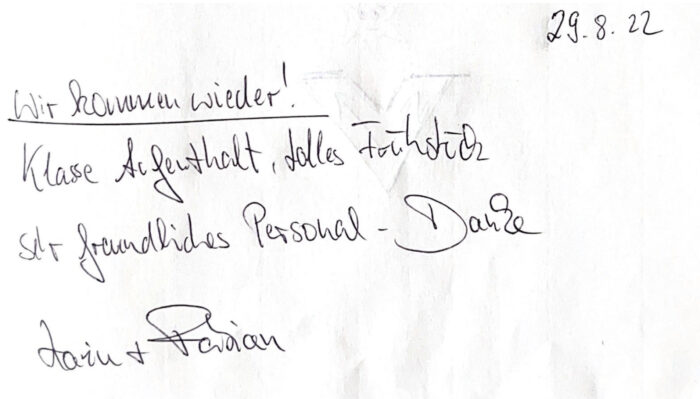 29.8.22
Wir kommen wieder!
Klasse Aufenthalt, tolles Frühstück
sehr freundliches Personal - Danke
+ Fabian